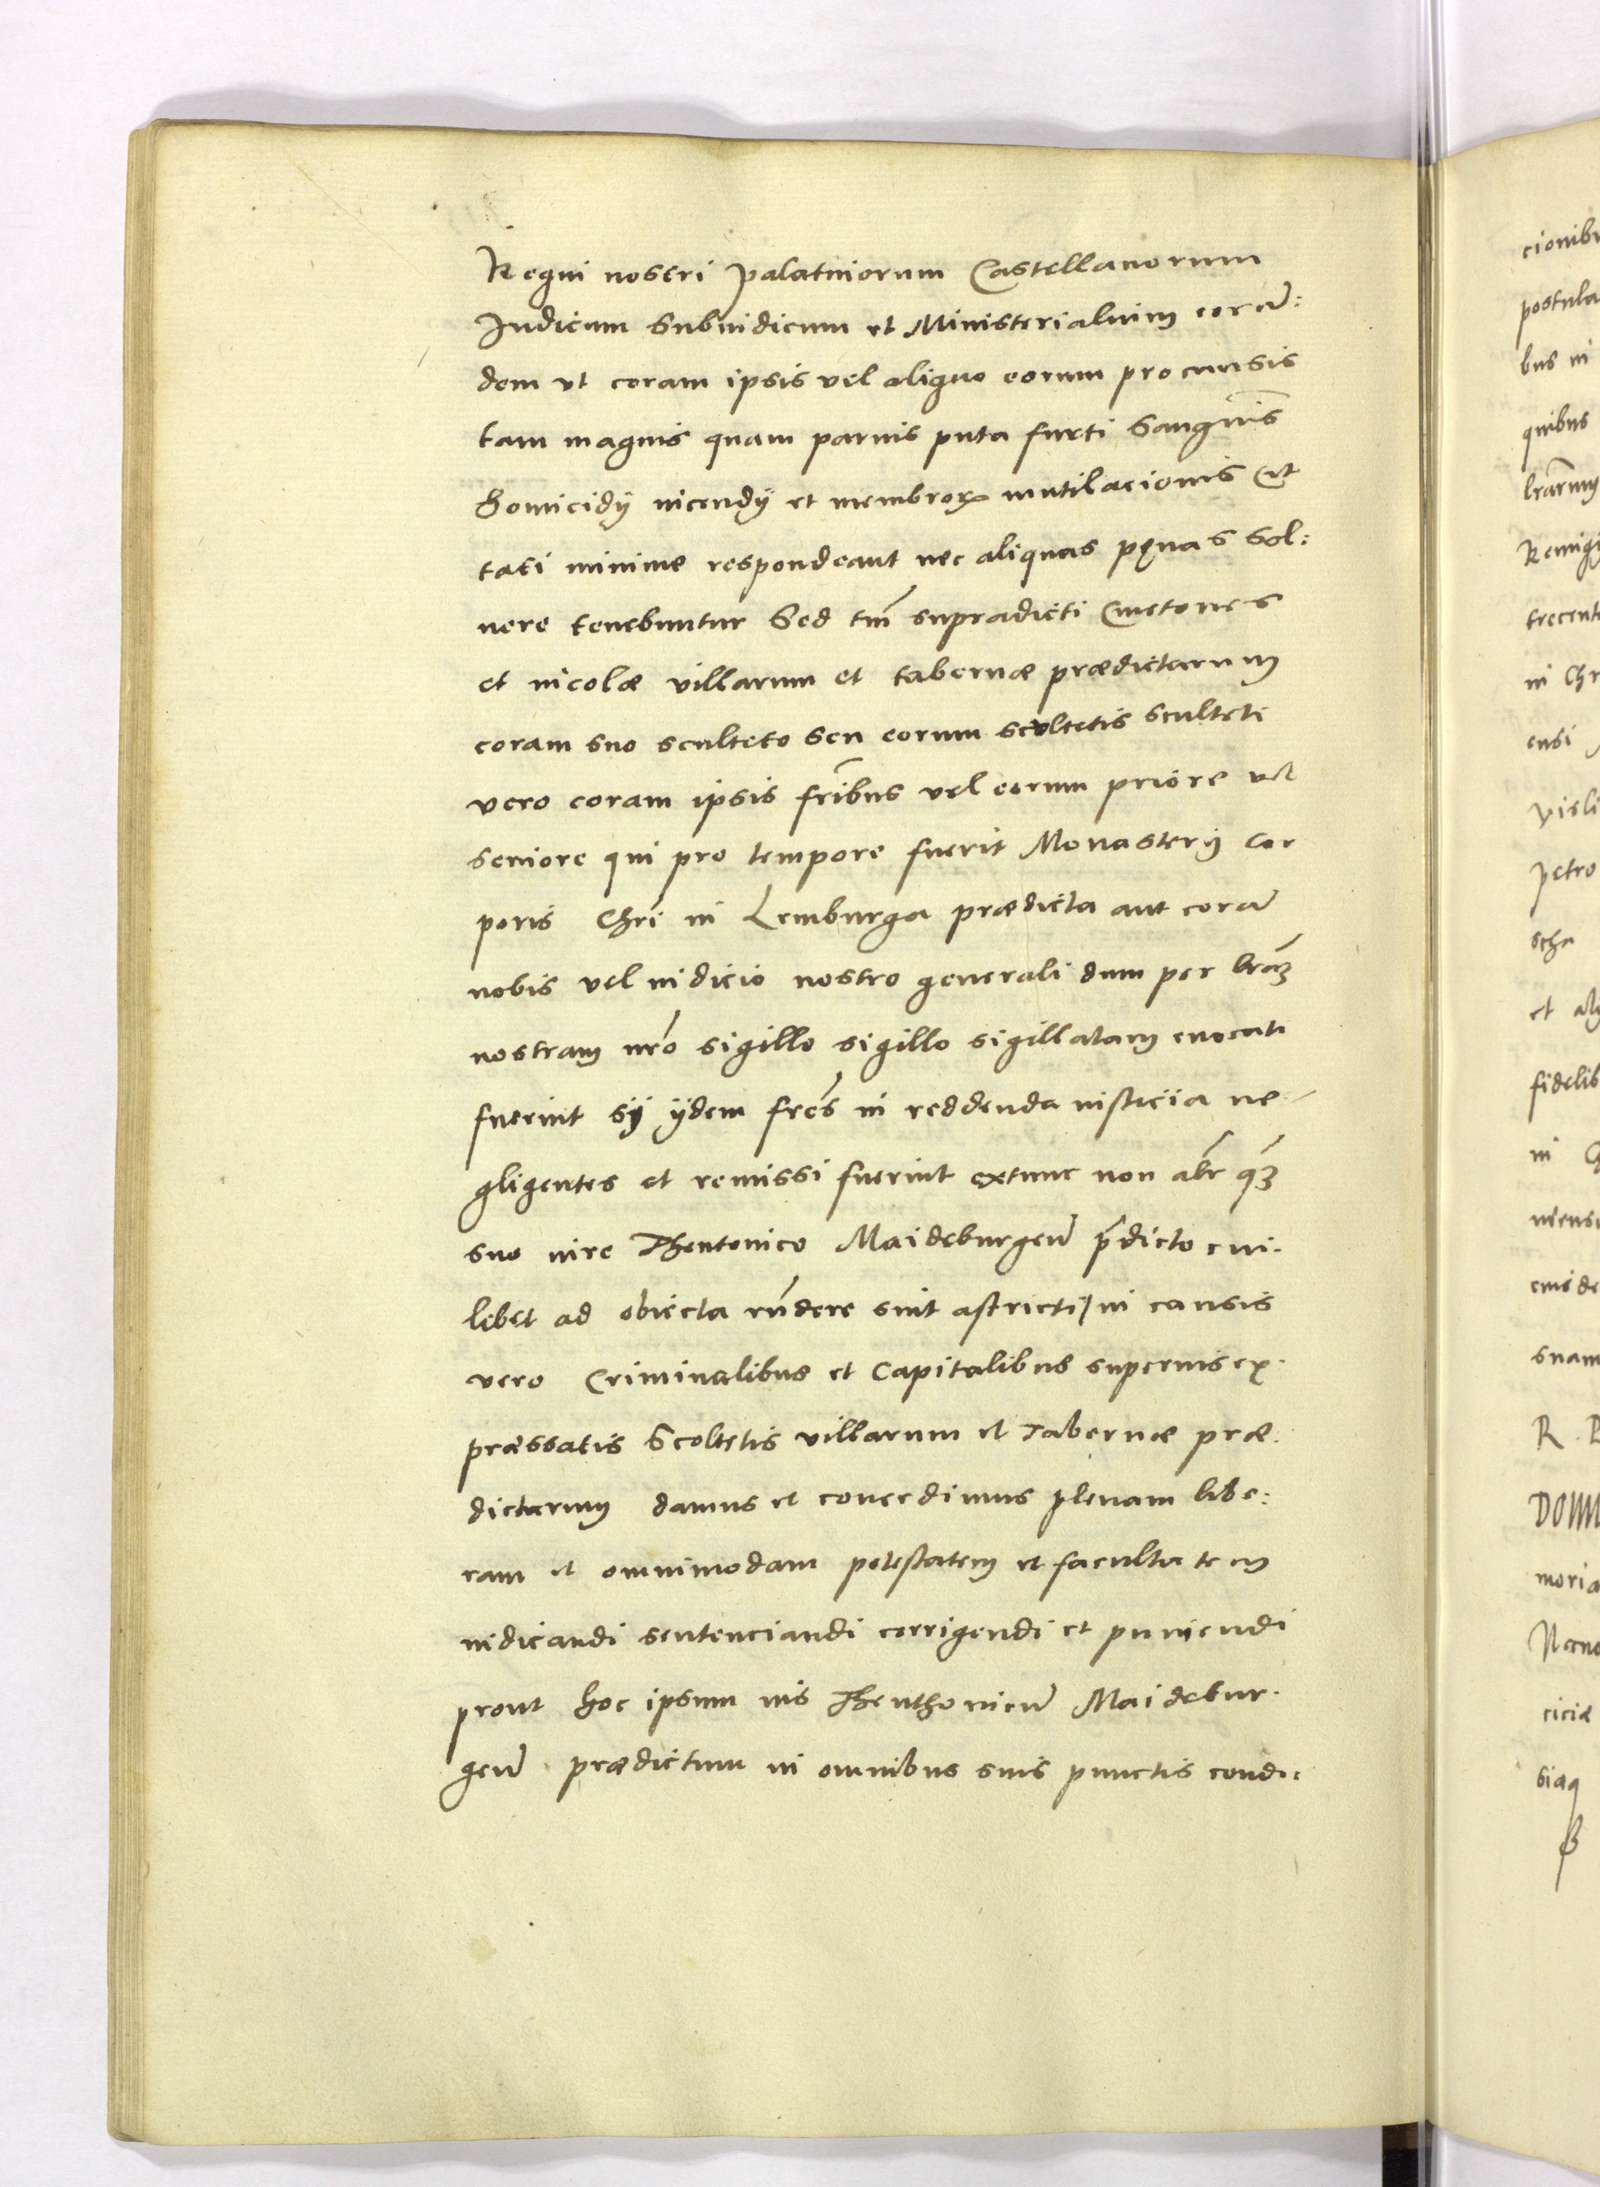 Regni nostri Palatinorum Castellanorum
Iudicum Subiudicum et Ministerialium eorun̄:
dem vt coram ipsis vel aliquo eorum pro causis
tam magnis quam paruis puta furti Sanguīs
homicidÿ incendÿ et membroꝝ mutilacionis Cit
tati minime respondeant nec aliquas pęnas Sol:
uere tenebuntur Sed tm̄ supradicti Cmetones
et incolæ villarum et tabernæ prædictarum
coram suo sculteto seu eorum scultetis sculteti
vero coram ipsis frībus vel eorum priore vel
seniore qui pro tempore fuerit Monasterÿ Cor
poris Chrī in Lemburga prædicta aut corā
nobis vel iudicio nostro generali dum per lrām
nostram nrō sigillo sigillo sigillatam euocati
fuerint sÿ ÿdem frēs in reddenda iusticia ne
gligentes et remissi fuerint extunc non alr̄ qꝫ̄
suo iure Theutonico Maideburgen̄ p̄dicto cui.
libet ad obiecta rn̄dere sint astricti/in causis
vero Criminalibus et Capitalibus superius ex.
præssatis Scoltetis villarum et Tabernæ præ.
dictarum damus et concedimus plenam libe:
ram et omnimodam potestatem et facultatem
iudicandi sentenciandi corrigendi et puniendi
prout hoc ipsum ius Theuthonicū Maidebur.
gen̄ prædictum in omnibus suis punctis condi:
cionibu
postula
bus in
quibus
Remigi
trecent
in Chr
ensi
Visli
petro
scha
et al
fidelib
in
eius de
suam
R. P
DOMI
moria
Necno
ciciæ
siaq